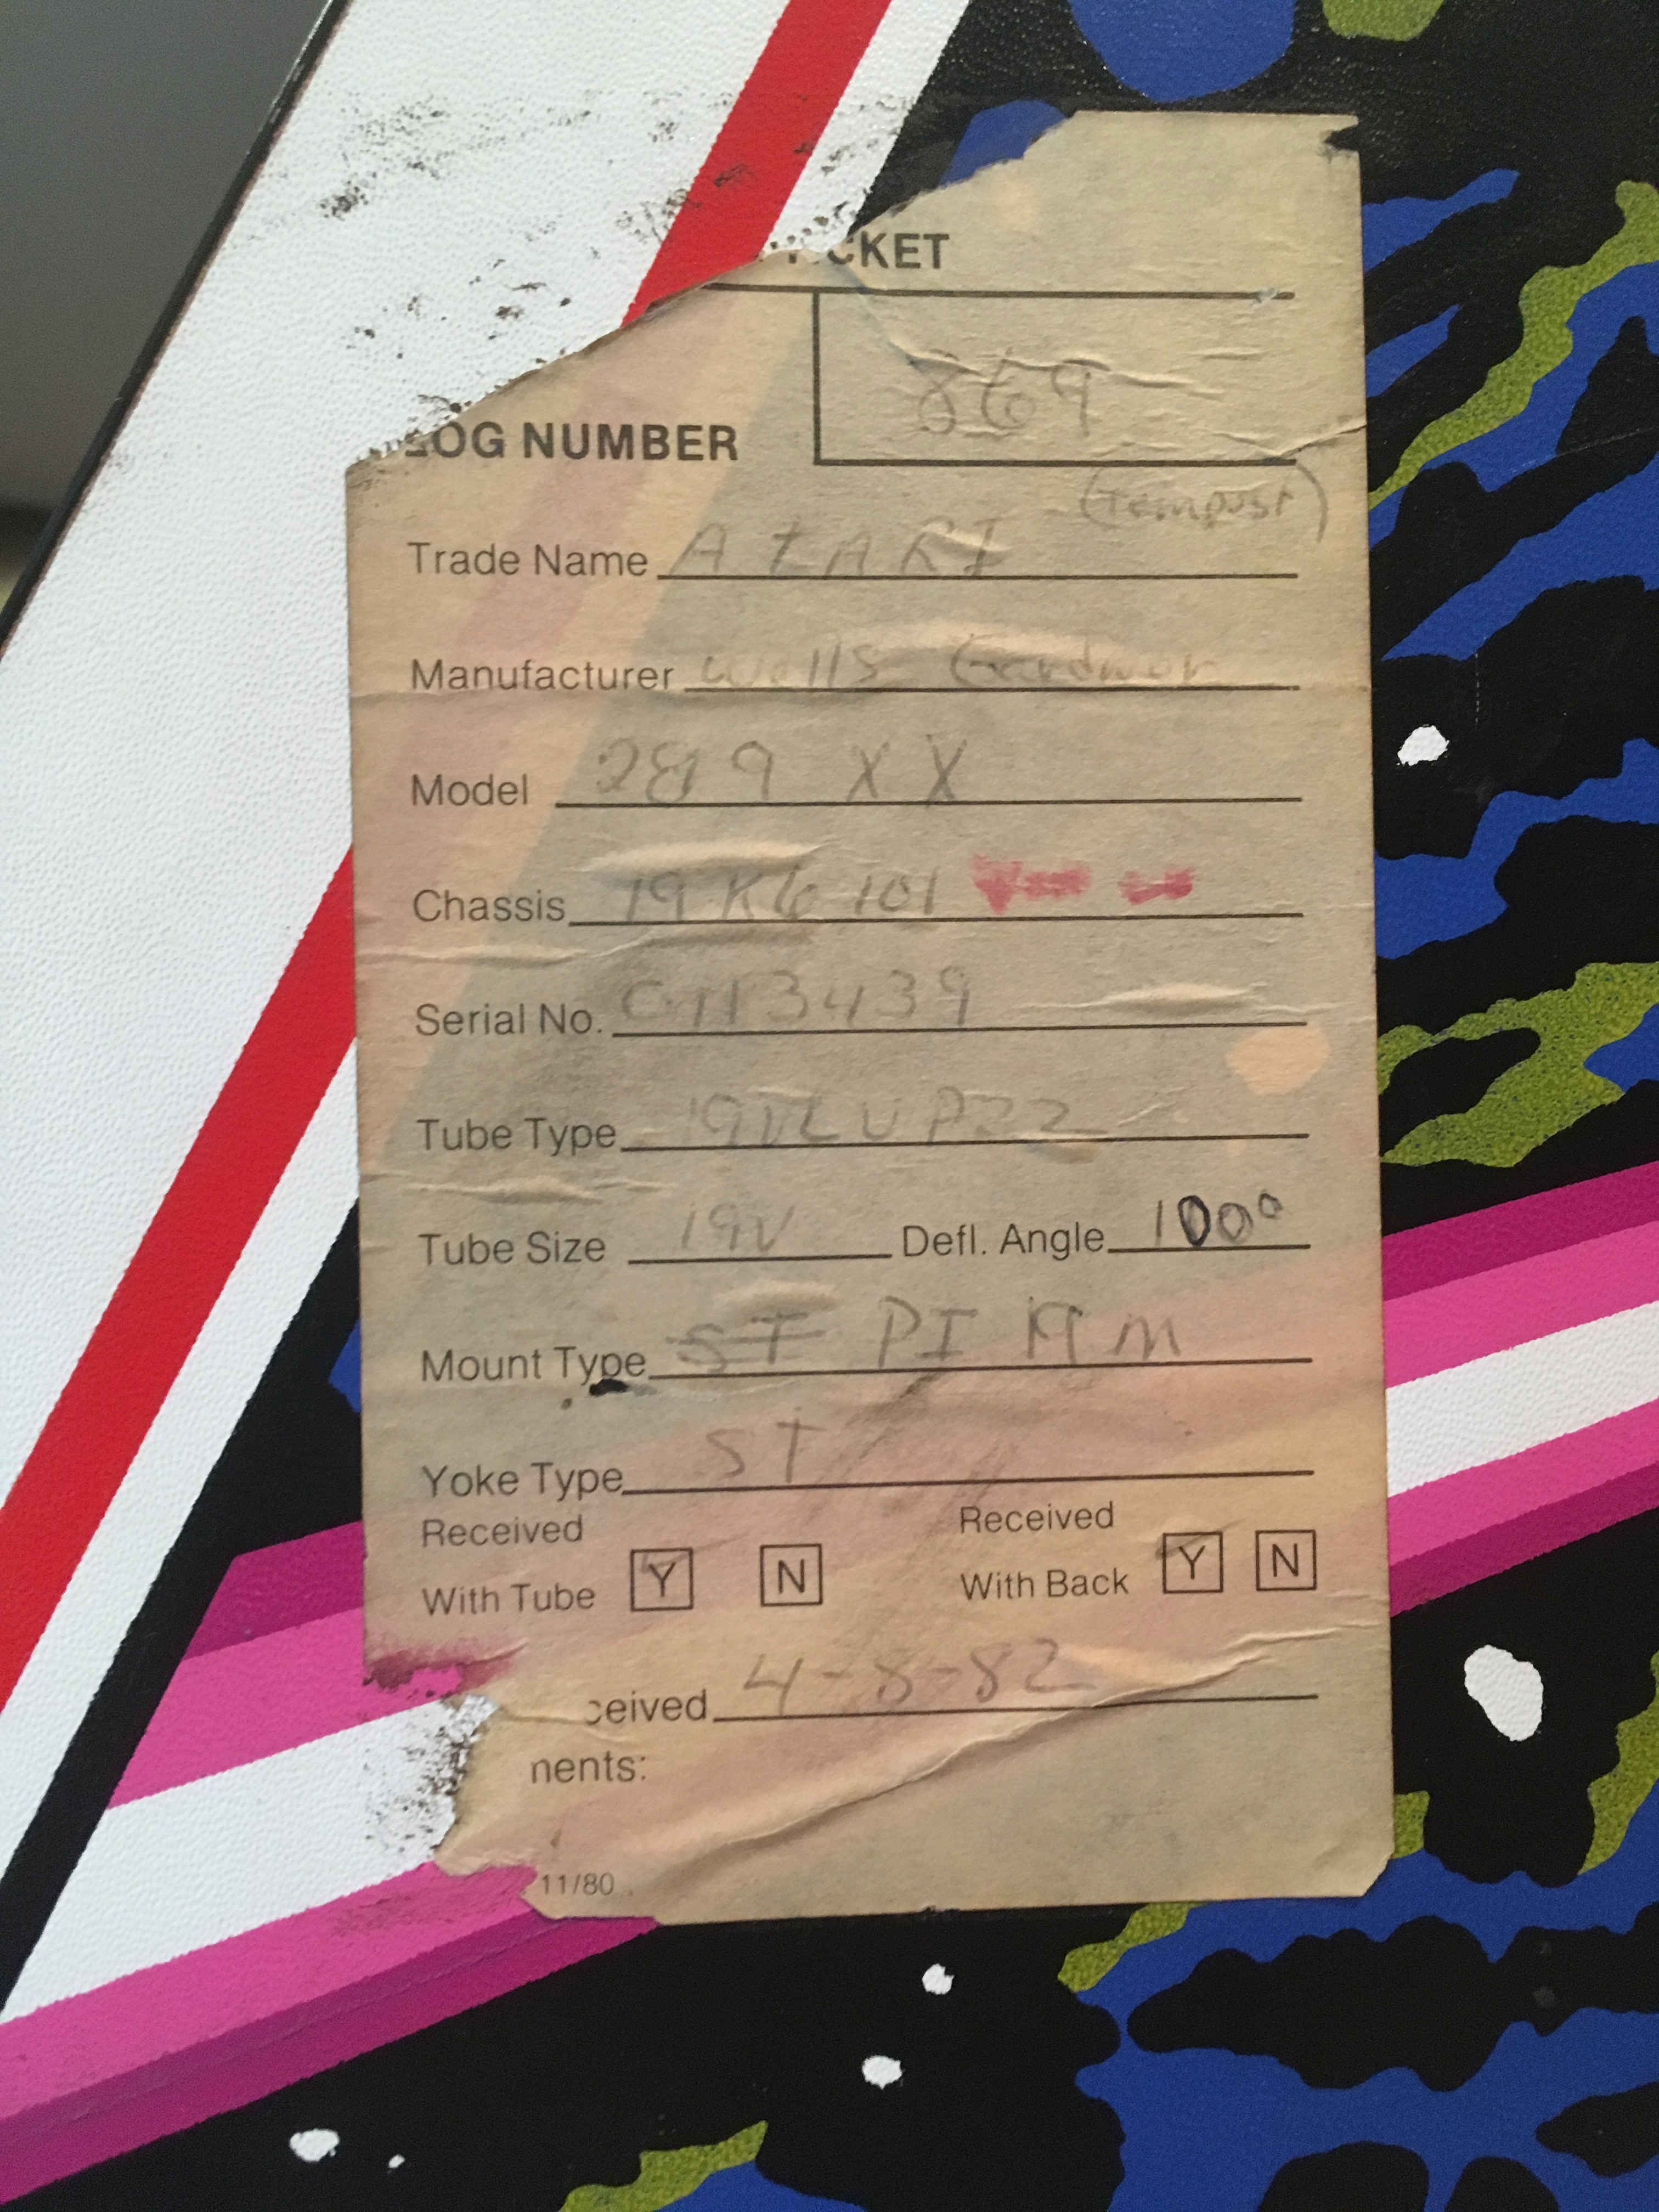 CKET
869
LOG NUMBER
(Tempest)
Trade Name AtARI
Manufacturer Wells Gardner
Model 2819 XX
Chassis 19K6101
Serial No. 0113439
Tube Type 19VLUP22
Tube Size 19V Defl. Angle 100°
Mount Type ST PI 19 m
Yoke Type ST
Received
With Tube Y N
Received
With Back Y N
ceived 4-8-82
nents:
11/80